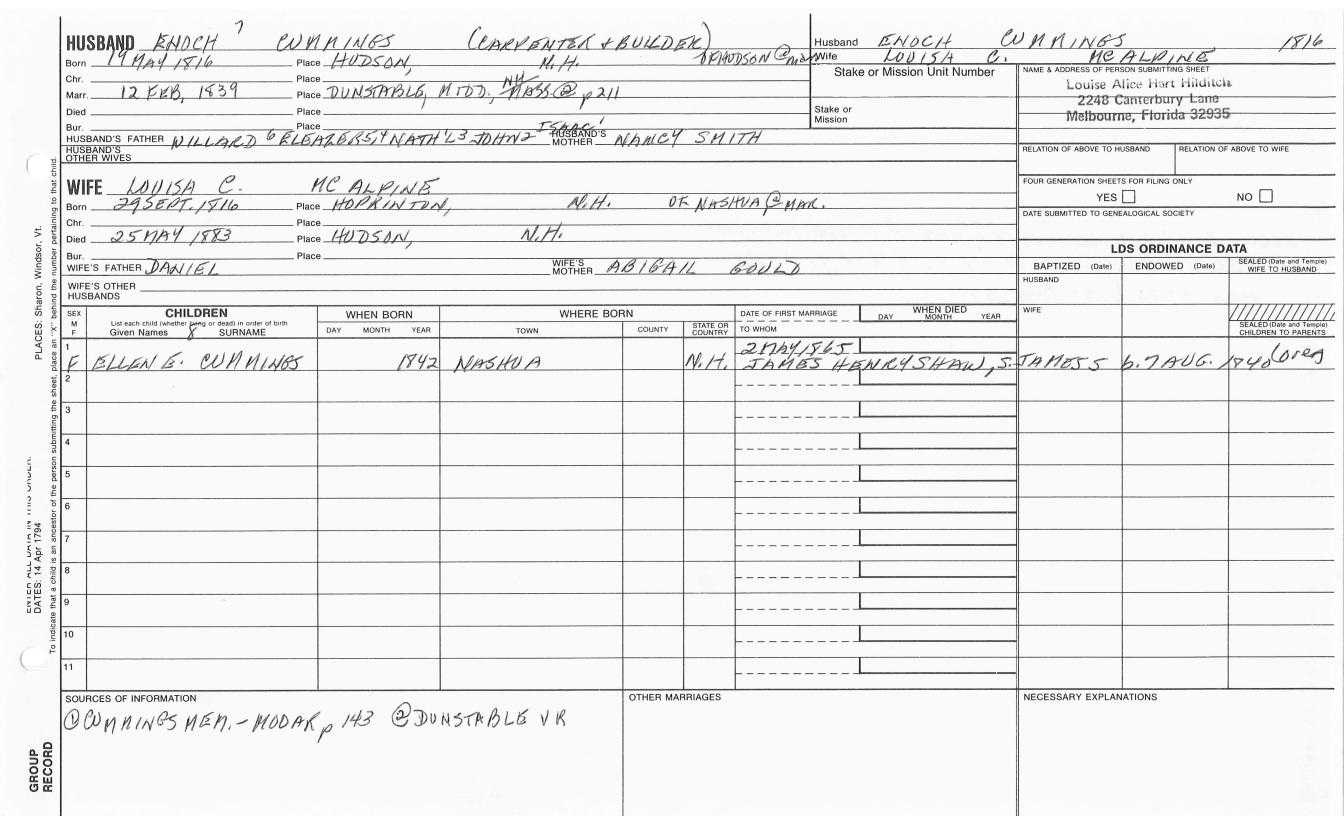 HUSBAND ENOCH 7 CUMMINGS (CARPENTER & BUILDER)
Born 19 MAY 1816 Place HUDSON, N.H. OF HUDSON @ mar
Chr. Place
Marr. 12 FEB, 1839 Place DUNSTABLE, MIDD., MASS② p211 NH
Died Place
Bur. Place
HUSBAND'S FATHER WILLARD 6 ELEAZER5,4 NATH'L3 JOHN2 ISAAC1 HUSBAND'S MOTHER NANCY SMITH
HUSBAND'S OTHER WIVES
WIFE LOUISA C. MC ALPINE
Born 29 SEPT. 1816 Place HOPKINTON, N.H. OF NASHUA @ MAR.
Chr. Place
Died 25 MAY 1883 Place HUDSON, N.H.
Bur. Place
WIFE'S FATHER DANIEL WIFE'S MOTHER ABIGAIL GOULD
WIFE'S OTHER HUSBANDS
Husband ENOCH CUMMINGS 1816
Wife LOUISA C. MC ALPINE
Stake or Mission Unit Number
Stake or Mission
NAME & ADDRESS OF PERSON SUBMITTING SHEET
Louise Alice Hart Hilditch
2248 Canterbury Lane
Melbourne, Florida 32935
RELATION OF ABOVE TO HUSBAND RELATION OF ABOVE TO WIFE
FOUR GENERATION SHEETS FOR FILING ONLY
YES NO
DATE SUBMITTED TO GENEALOGICAL SOCIETY
LDS ORDINANCE DATA
BAPTIZED (Date) ENDOWED (Date) SEALED (Date and Temple) WIFE TO HUSBAND
HUSBAND
WIFE
SEALED (Date and Temple) CHILDREN TO PARENTS
SEX M F
CHILDREN
List each child (whether living or dead) in order of birth
Given Names 8 SURNAME
WHEN BORN
DAY MONTH YEAR
WHERE BORN
TOWN COUNTY STATE OR COUNTRY
DATE OF FIRST MARRIAGE
TO WHOM
WHEN DIED
DAY MONTH YEAR
1 2 MAY 1865
F ELLEN E. CUMMINGS 1842 NASHUA N.H. JAMES HENRY SHAW, S. JAMES S b. 7 AUG. 1840
2
3
4
5
6
7
8
9
10
11
SOURCES OF INFORMATION
① CUMMINGS MEM. - MODAR p 143 ② DUNSTABLE VR
OTHER MARRIAGES
NECESSARY EXPLANATIONS
PLACES: Sharon, Windsor, Vt.
DATES: 14 Apr 1794
To indicate that a child is an ancestor of the person submitting the sheet, place an "X" behind the number pertaining to that child.
GROUP RECORD